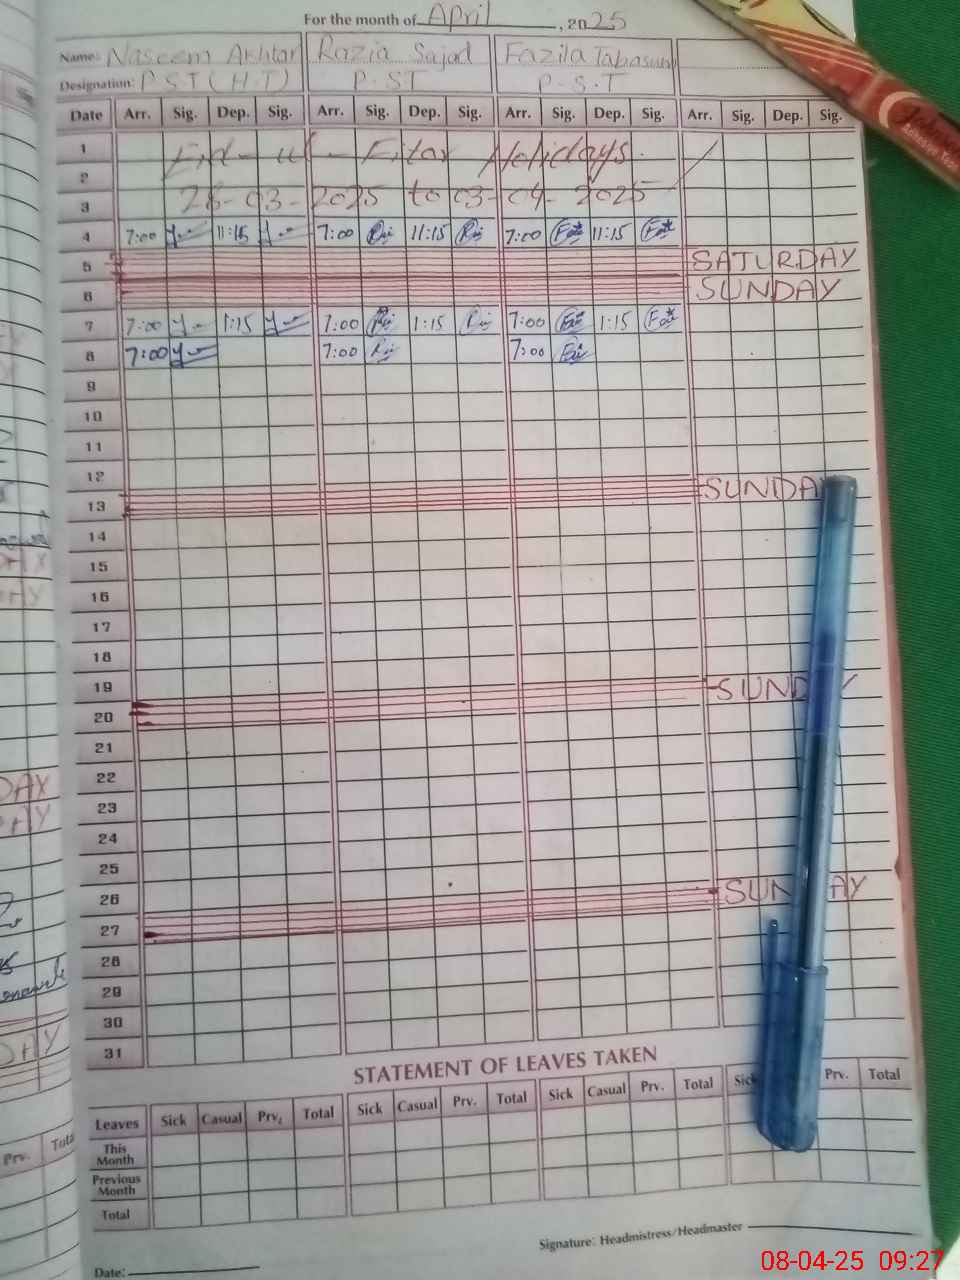 For the month of April, 2025
Name: Naseem Akhtar Razia Sajad Fazila Tabasum
Designation: P.S.T (H.T) P.ST P.S.T
Date Arr. Sig. Dep. Sig. Arr. Sig. Dep. Sig. Arr. Sig. Dep. Sig. Arr. Sig. Dep. Sig.
1 Eid-ul-Fitar Holidays.
2
3 28-03-2025 to 03-04-2025
4 7:00 11:15 7:00 11:15 7:00 11:15
5 SATURDAY
6 SUNDAY
7 7:00 1:15 7:00 1:15 7:00 1:15
8 7:00 7:00 7:00
9
10
11
12
13 SUNDA
14
15
16
17
18
19
20 SUNDAY
21
22
23
24
25
26
27 SUN AY
28
29
30
31
STATEMENT OF LEAVES TAKEN
Leaves Sick Casual Prv. Total Sick Casual Prv. Total Sick Casual Prv. Total Sick Prv. Total
This Month
Previous Month
Total
Signature: Headmistress/Headmaster
Date:
08-04-25 09:27